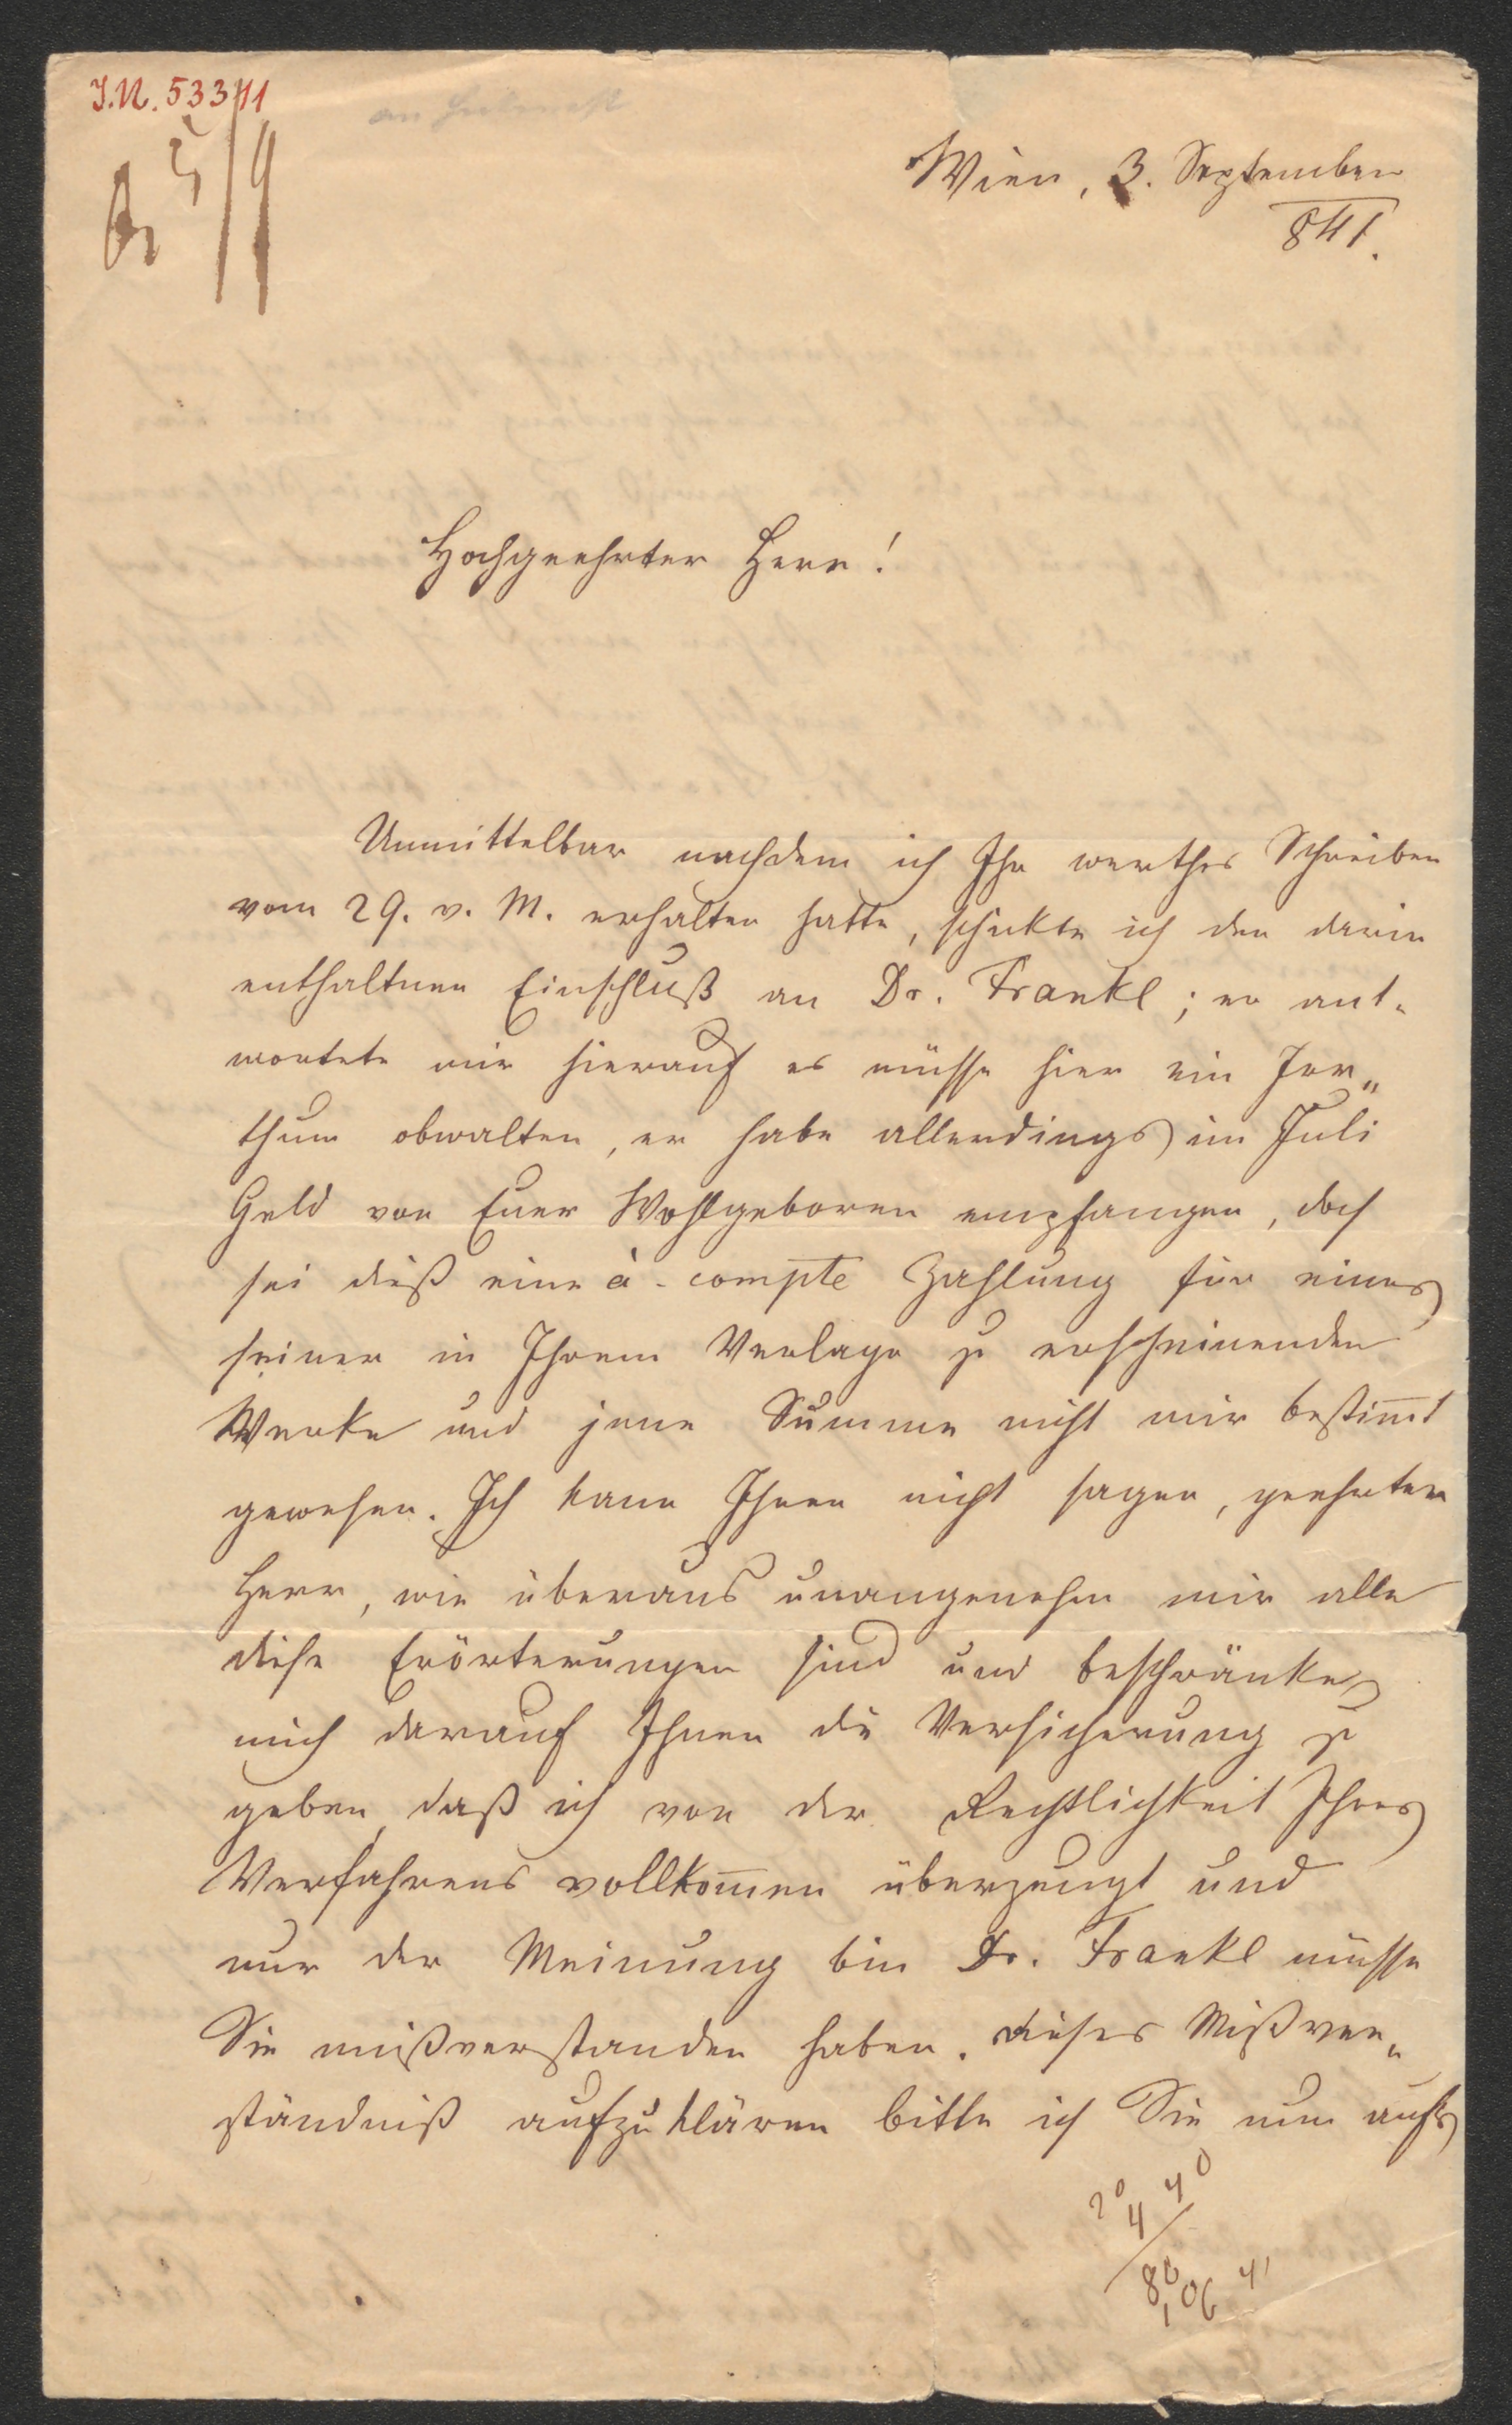 I.N. 53341
5/9
Wien, 3. September
841.
Hochgeehrter Herr!
Unmittelbar nachdem ich Ihr werthes Schreiben
vom 29. v. M. erhalten hatte, schickte ich den darin
enthaltnen Einschluß an Dr. Frankl; er ant-
wortete mir hierauf es müsse hier ein Irr„
thum obwalten, er habe allerdings im Juli
Geld von Euer Wohlgeboren empfangen, doch
sei dieß eine à-compte Zahlung für eines
seiner in Ihrem Verlage zu erscheinenden
Werke und jene Summe nicht mir bestim̅t
gewesen. Ich kann Ihnen nicht sagen, geehrter
Herr, wie überaus unangenehm mir alle
diese Erörterungen sind und beschränke
mich darauf Ihnen die Versicherung zu
geben, daß ich von der Rechtlichkeit Ihres
Verfahrens vollkom̅en überzeugt und
nur der Meinung bin Dr. Frankl müsse
Sie mißverstanden haben. Dieses Mißver„
ständniß aufzuklären bitte ich Sie nun aufs
20 40
4
80
106 41